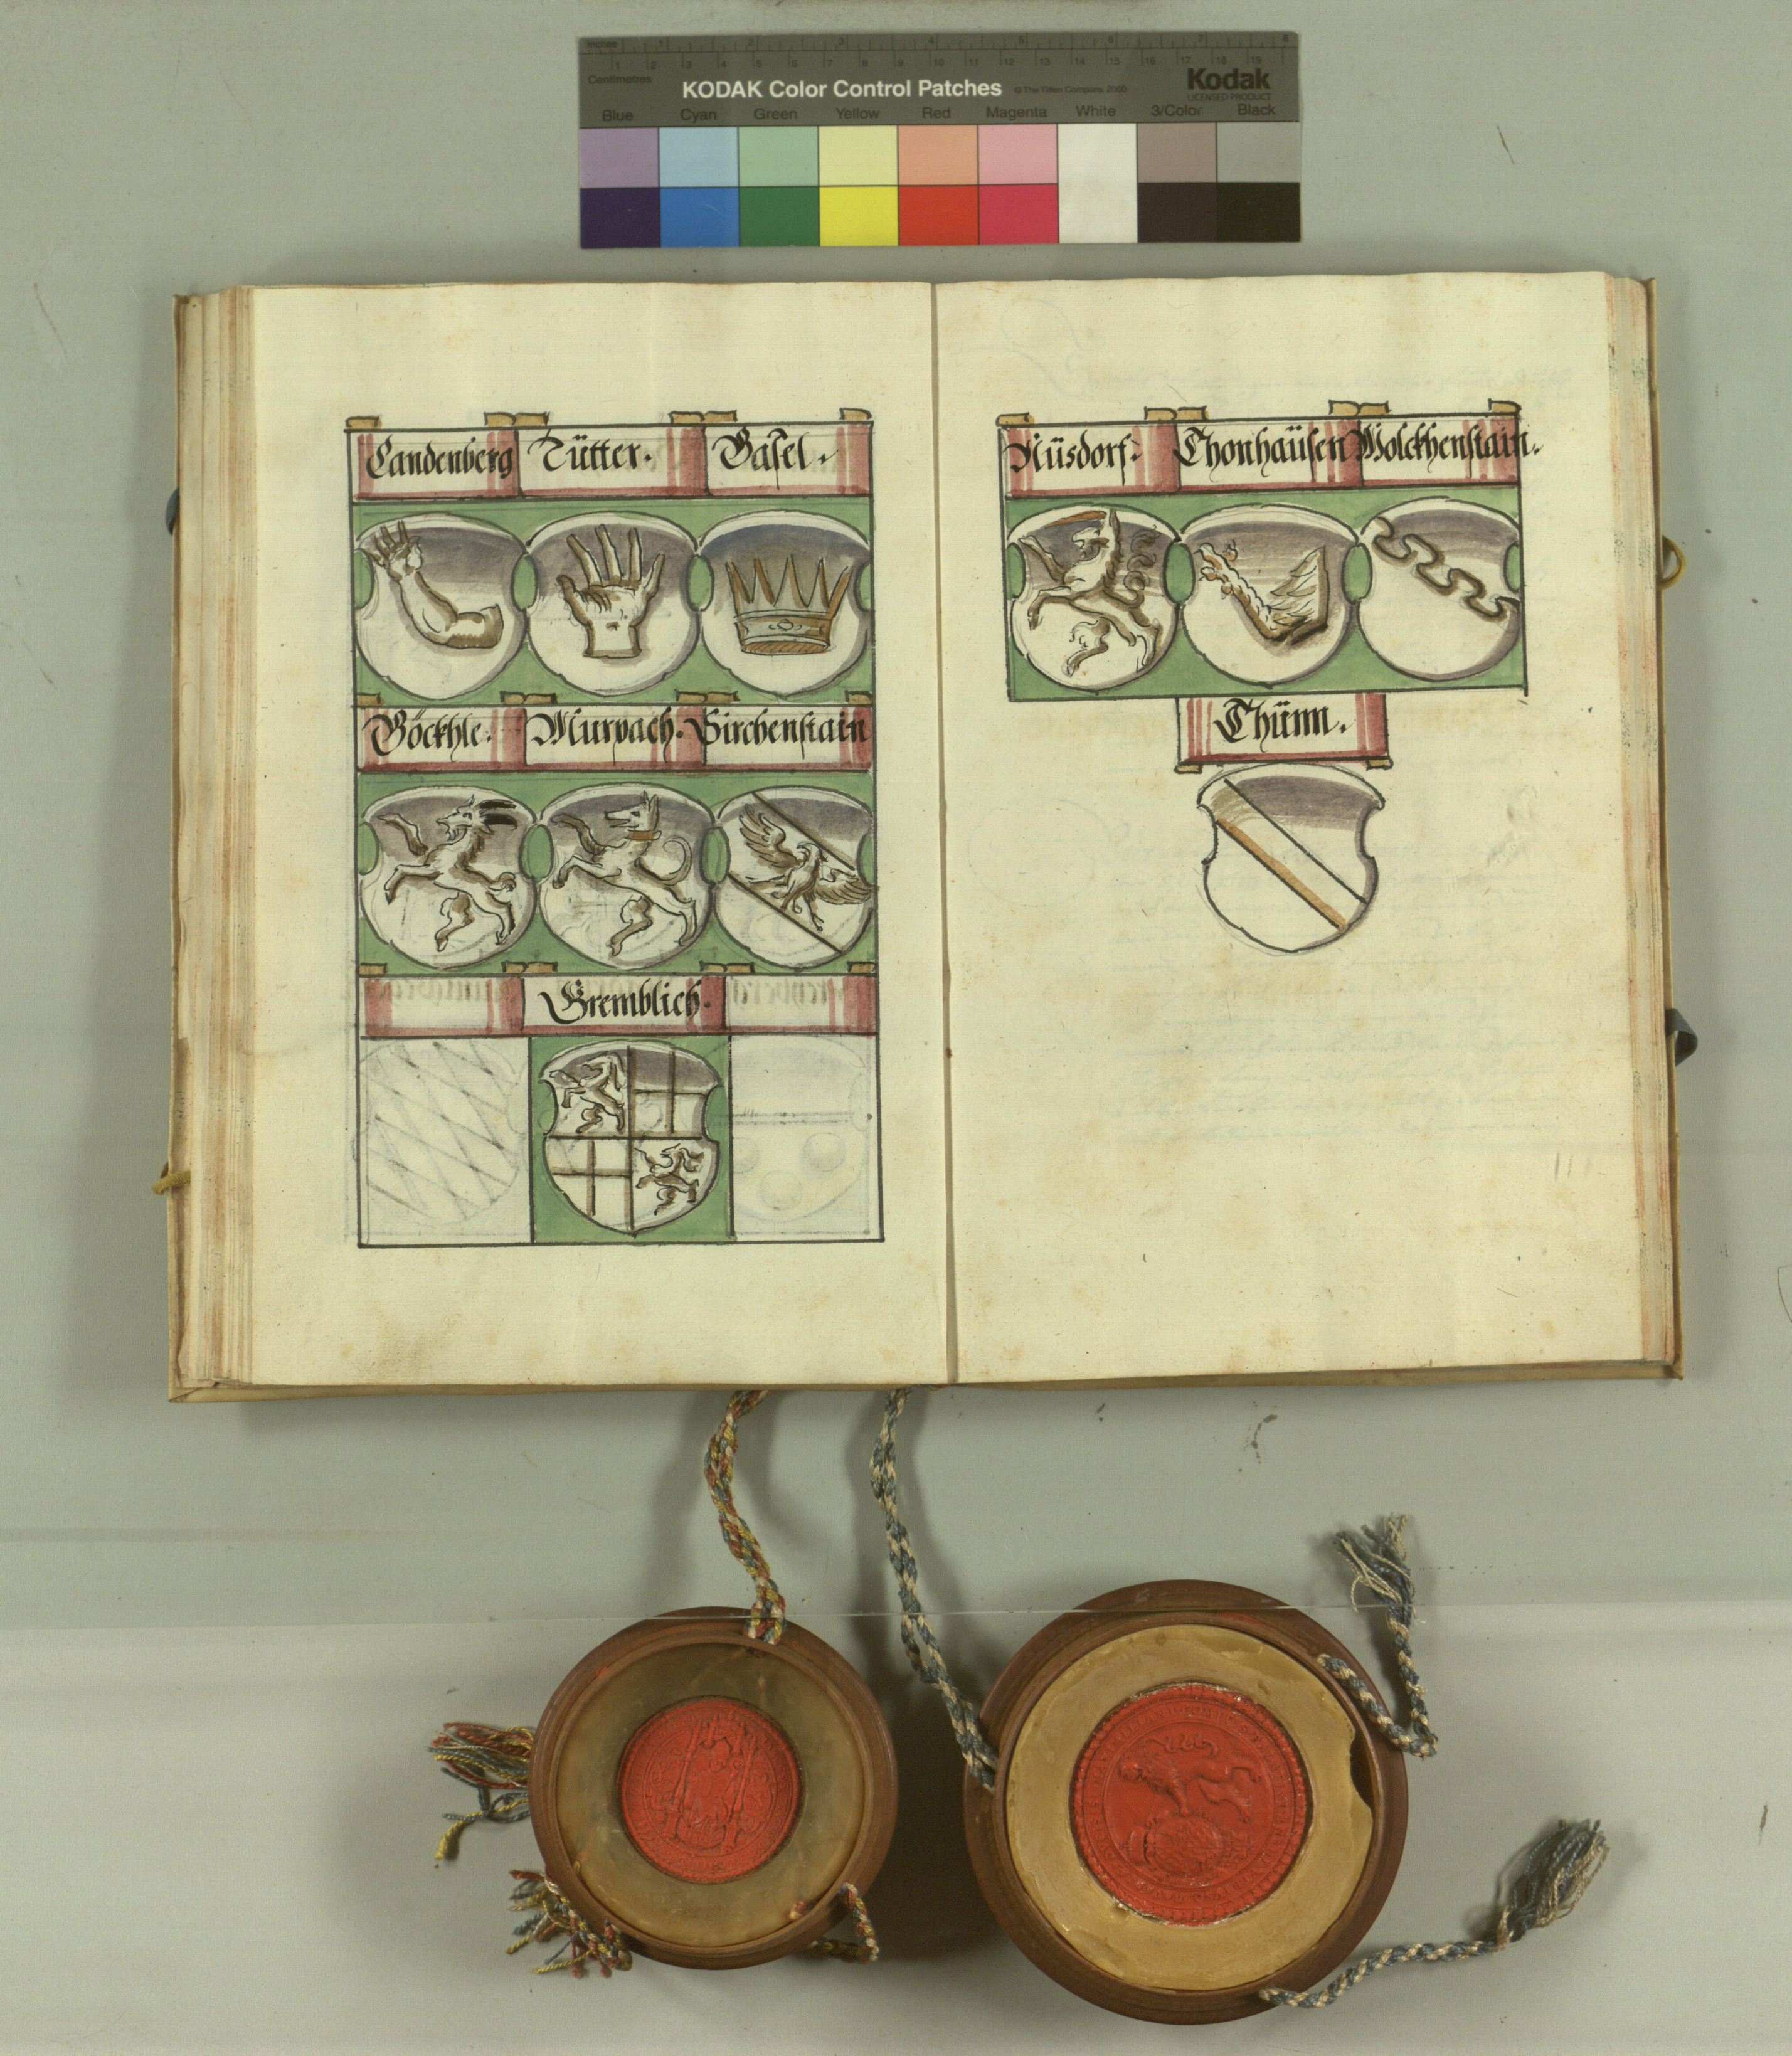 Inches 1 2 3 4 5 6 7 8
1 2 3 4 5 6 7 8 9 10 11 12 13 14 15 16 17 18 19
Centimetres
KODAK Color Control Patches © The Tiffen Company, 2000 Kodak
LICENSED PRODUCT
Blue Cyan Green Yellow Red Magenta White 3/Color Black
Landenberg Tütter. Basel.
Böckhle. Murpach. Birchenstain
Gremblich.
Nüsdorf. Thonhaüsen Wolckhenstain.
Thünn.